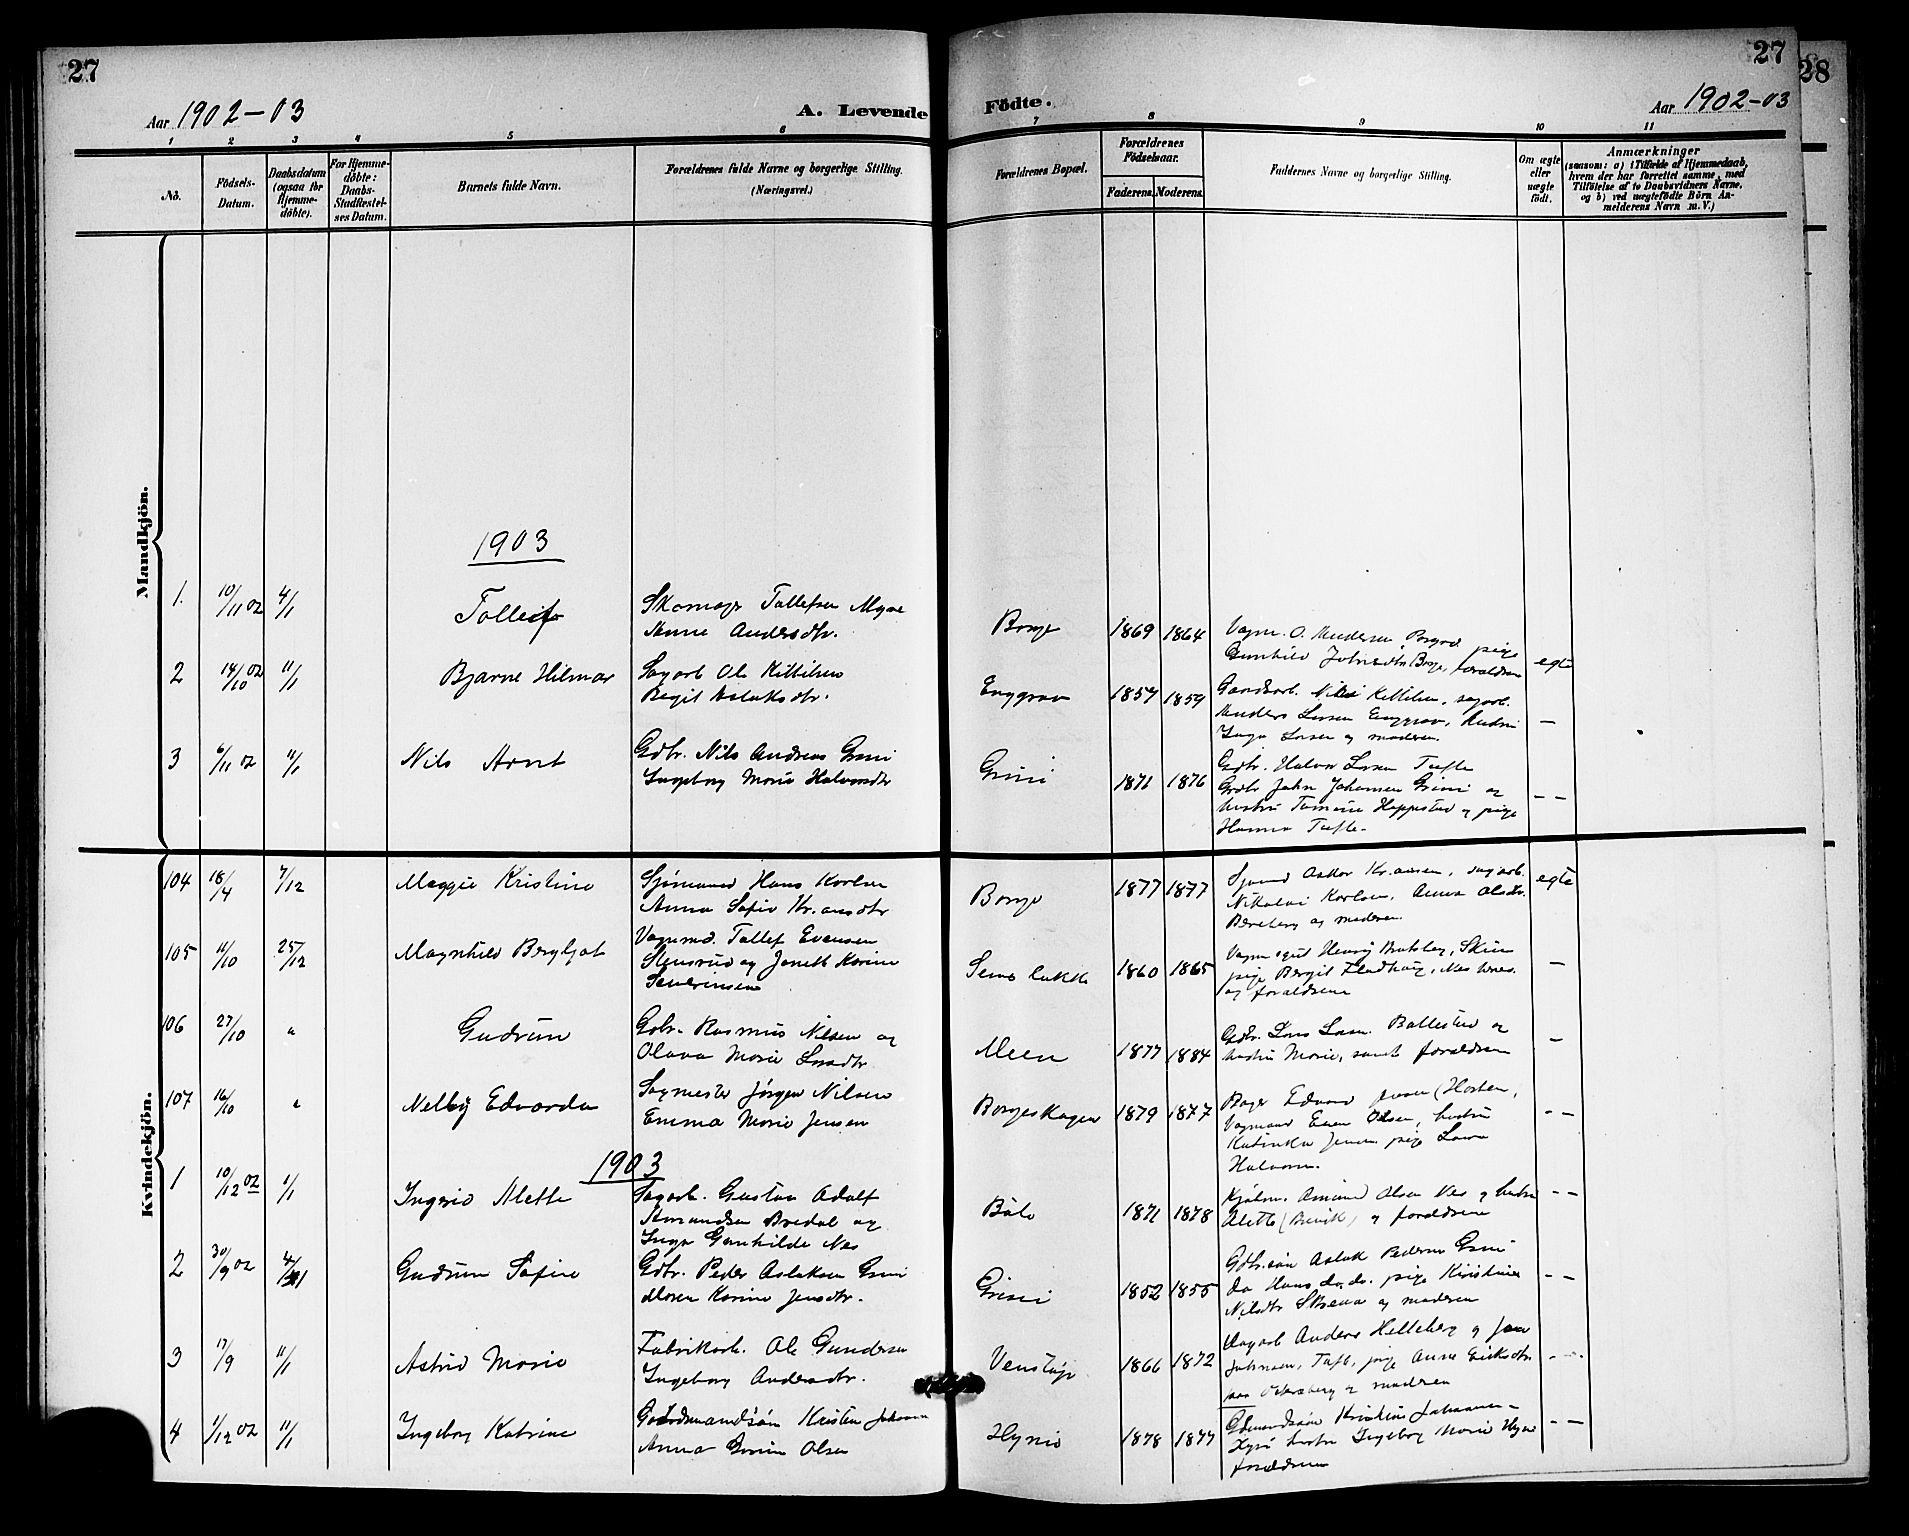 27
27
28
Aar 1902-03
A. Levende
Födte.
Aar 1902-03
1 2 3 4 5 6 7 8 9 10 11
No.
Födsels-
Datum.
Daabsdatum
(ogsaa for
Hjemme-
döbte).
For Hjemme-
döbte:
Daabs-
Stadfæstel-
ses Datum.
Barnets fulde Navn.
Forældrenes fulde Navne og borgerlige Stilling.
(Næringsvei.)
Forældrenes Bopæl.
Forældrenes
Födselsaar.
Faderens. Moderens.
Faddernes Navne og borgerlige Stilling.
Om ægte
eller
uægte
födt.
Anmærkninger
(saasom: a) i Tilfælde af Hjemmedaab,
hvem der har forrettet samme, med
Tilföielse af to Daabsvidners Navne,
og b) ved uægtefödte Börn An-
melderens Navn m. V.)
Mandkjön.
1903
1. 10/11 02 4/1
Tollef
Skomager Tollefsen Myre
Anne Andersdtr.
Borge
1869 1864
Vagnm. O. Andersen Borge pige
Gunhild Johnsdtr Borge, forældrene
egte
2 14/10 02 11/1
Bjarne Hilmar
Sagarb Ole Kittilsen
Begit Aslaksdtr.
Enggrav
1857 1859
Nils Kittilsen, sagarb.
Anders Larsen Enggrav, hustru
Inga Larsen og moderen.
—
3 6/11 02 11/1
Nils Arnt
Gdbr. Nils Andreas Grini
Ingeborg Marie Halvorsdtr
Grini
1871 1876
Gdbr. Halvor Larsen Tufte
Gdbr John Johansen Grini og
hustru Tomine Heppestad og pige
Hanna Tufte.
— —
Kvindekjön.
104 18/4 7/12
Maggie Kristine
Sjømand Hans Karlsen
Anna Sofie Kr.ansdtr
Borge
1877 1877
Sjømd Oskar Kr.ansen, sagarb.
Nikolai Karlsen, Anna Olsdtr.
og moderen.
egte
105 11/10 25/12
Magnhild Bergljot
Vognmd. Tollef Evensen
Stensrud og Janette Karine
Severinsen
1860 1865
Henrij Bratsberg, Skien
pige Bergit
og forældrene
—
106 27/10 "
Gudrun
Gdbr. Rasmus Nilsen og
Olava Marie Larsdtr
Meen
1877 1884
Gdbr. Lars Larsen Ballestad og
hustru Marie, samt forældrene
—
107 16/10 "
Nelly Edvarda
Sagmester Jørgen Nilsen
Emma Marie Jensen
Borgeskogen
1879 1877
Bager Edvard Jensen (Horten,
Vognmand Even Olsen, hustru
Katinka Jensen pige Laura
Halvorsen.
— —
1903
1 10/12 02 1/1
Ingerid Alette
Sagarb. Gustav Adolf
Amundsen Bredal og
Inga Gunhilde Nes
Bøle
1871 1878
Amund Olsen Nes og hustru
Alette (Brevik) og forældrene
— —
2 30/9 02 4/1
Gudrun Sofie
Gdbr. Peder Aslaksen Grini
Maren Karine Jensdtr.
Grini
1852 1855
Gdbr.søn Aslak Pedersen Grini
do Hans do. do. pige Kirstine
Nilsdtr og moderen
— —
3 17/9 11/1
Astrid Marie
Fabrikarb. Ole Gundersen
Ingeborg Andersdtr.
Venstøp
1866 1872
Anders Helleberg og
Johnsen, Tufte, pige Anne Eriksdtr
og moderen
— —
4 1/12 02 11/1
Ingeborg Katrine
Gaardmandsøn Kristen Johansen
Anna Olsen
Hynie
1878 1877
Johannesen
hustru Ingeborg Marie
forældrene
— —